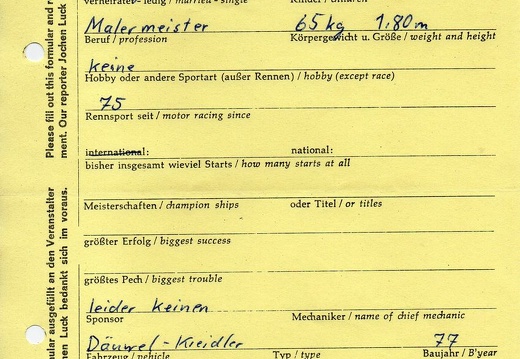 verheiratet- ledig / married - single Kinder / children
Malermeister 65 kg 1,80 m
Beruf / profession Körpergewicht u. Größe / weight and height
keine
Hobby oder andere Sportart (außer Rennen) / hobby (except race)
75
Rennsport seit / motor racing since
international: national:
bisher insgesamt wieviel Starts / how many starts at all
Meisterschaften / champion ships oder Titel / or titles
größter Erfolg / biggest success
größtes Pech / biggest trouble
leider keinen
Sponsor Mechaniker / name of chief mechanic
Däuwel - Kreidler 77
Fahrzeug / vehicle Typ / type Baujahr / B'year
Please fill out this formular and
ment. Our reporter Jochen Luck
ular ausgefüllt an den Veranstalter
hen Luck bedankt sich im voraus.